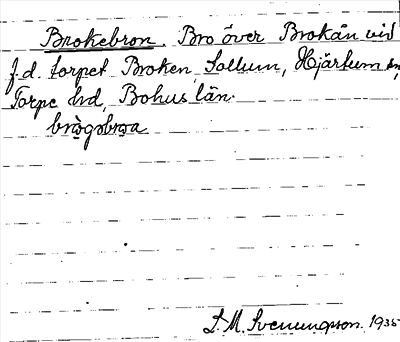 Brokebron. Bro över Brokån vid
f.d. torpet Broken, Sollum, Hjärtum sn,
Torpe hd, Bohus län.
brògəbroa
S. M. Svenungsson. 1935